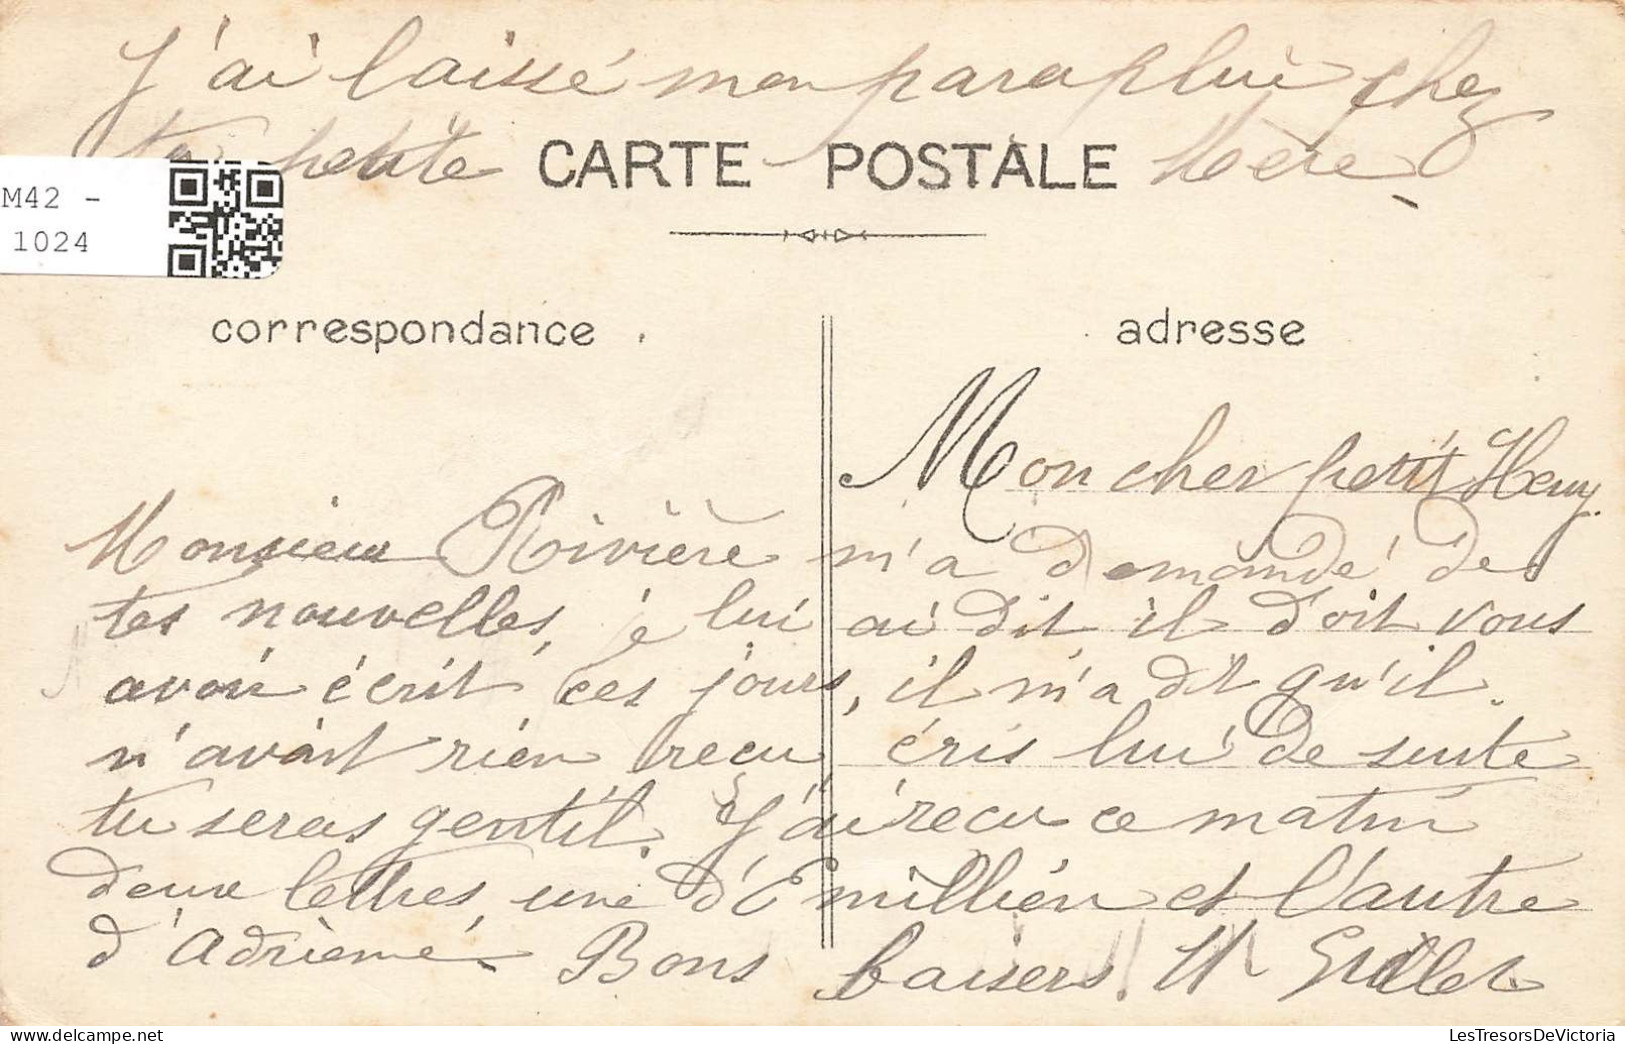 J'ai laissé mon parapluie chez
ta petite Mère
CARTE POSTALE
M42 -
1024
correspondance
adresse
Mon cher petit Henry.
Monsieur Rivière m'a demandé de
tes nouvelles, je lui ai dit il doit vous
avoir écrit ces jours, il m'a dit qu'il
n'avait rien reçu, écris lui de suite
tu seras gentil. J'ai reçu ce matin
deux lettres, une d'Emillien et l'autre
d'Adrienne. Bons baisers. M Grillet.
LesTresorsDeVictoria